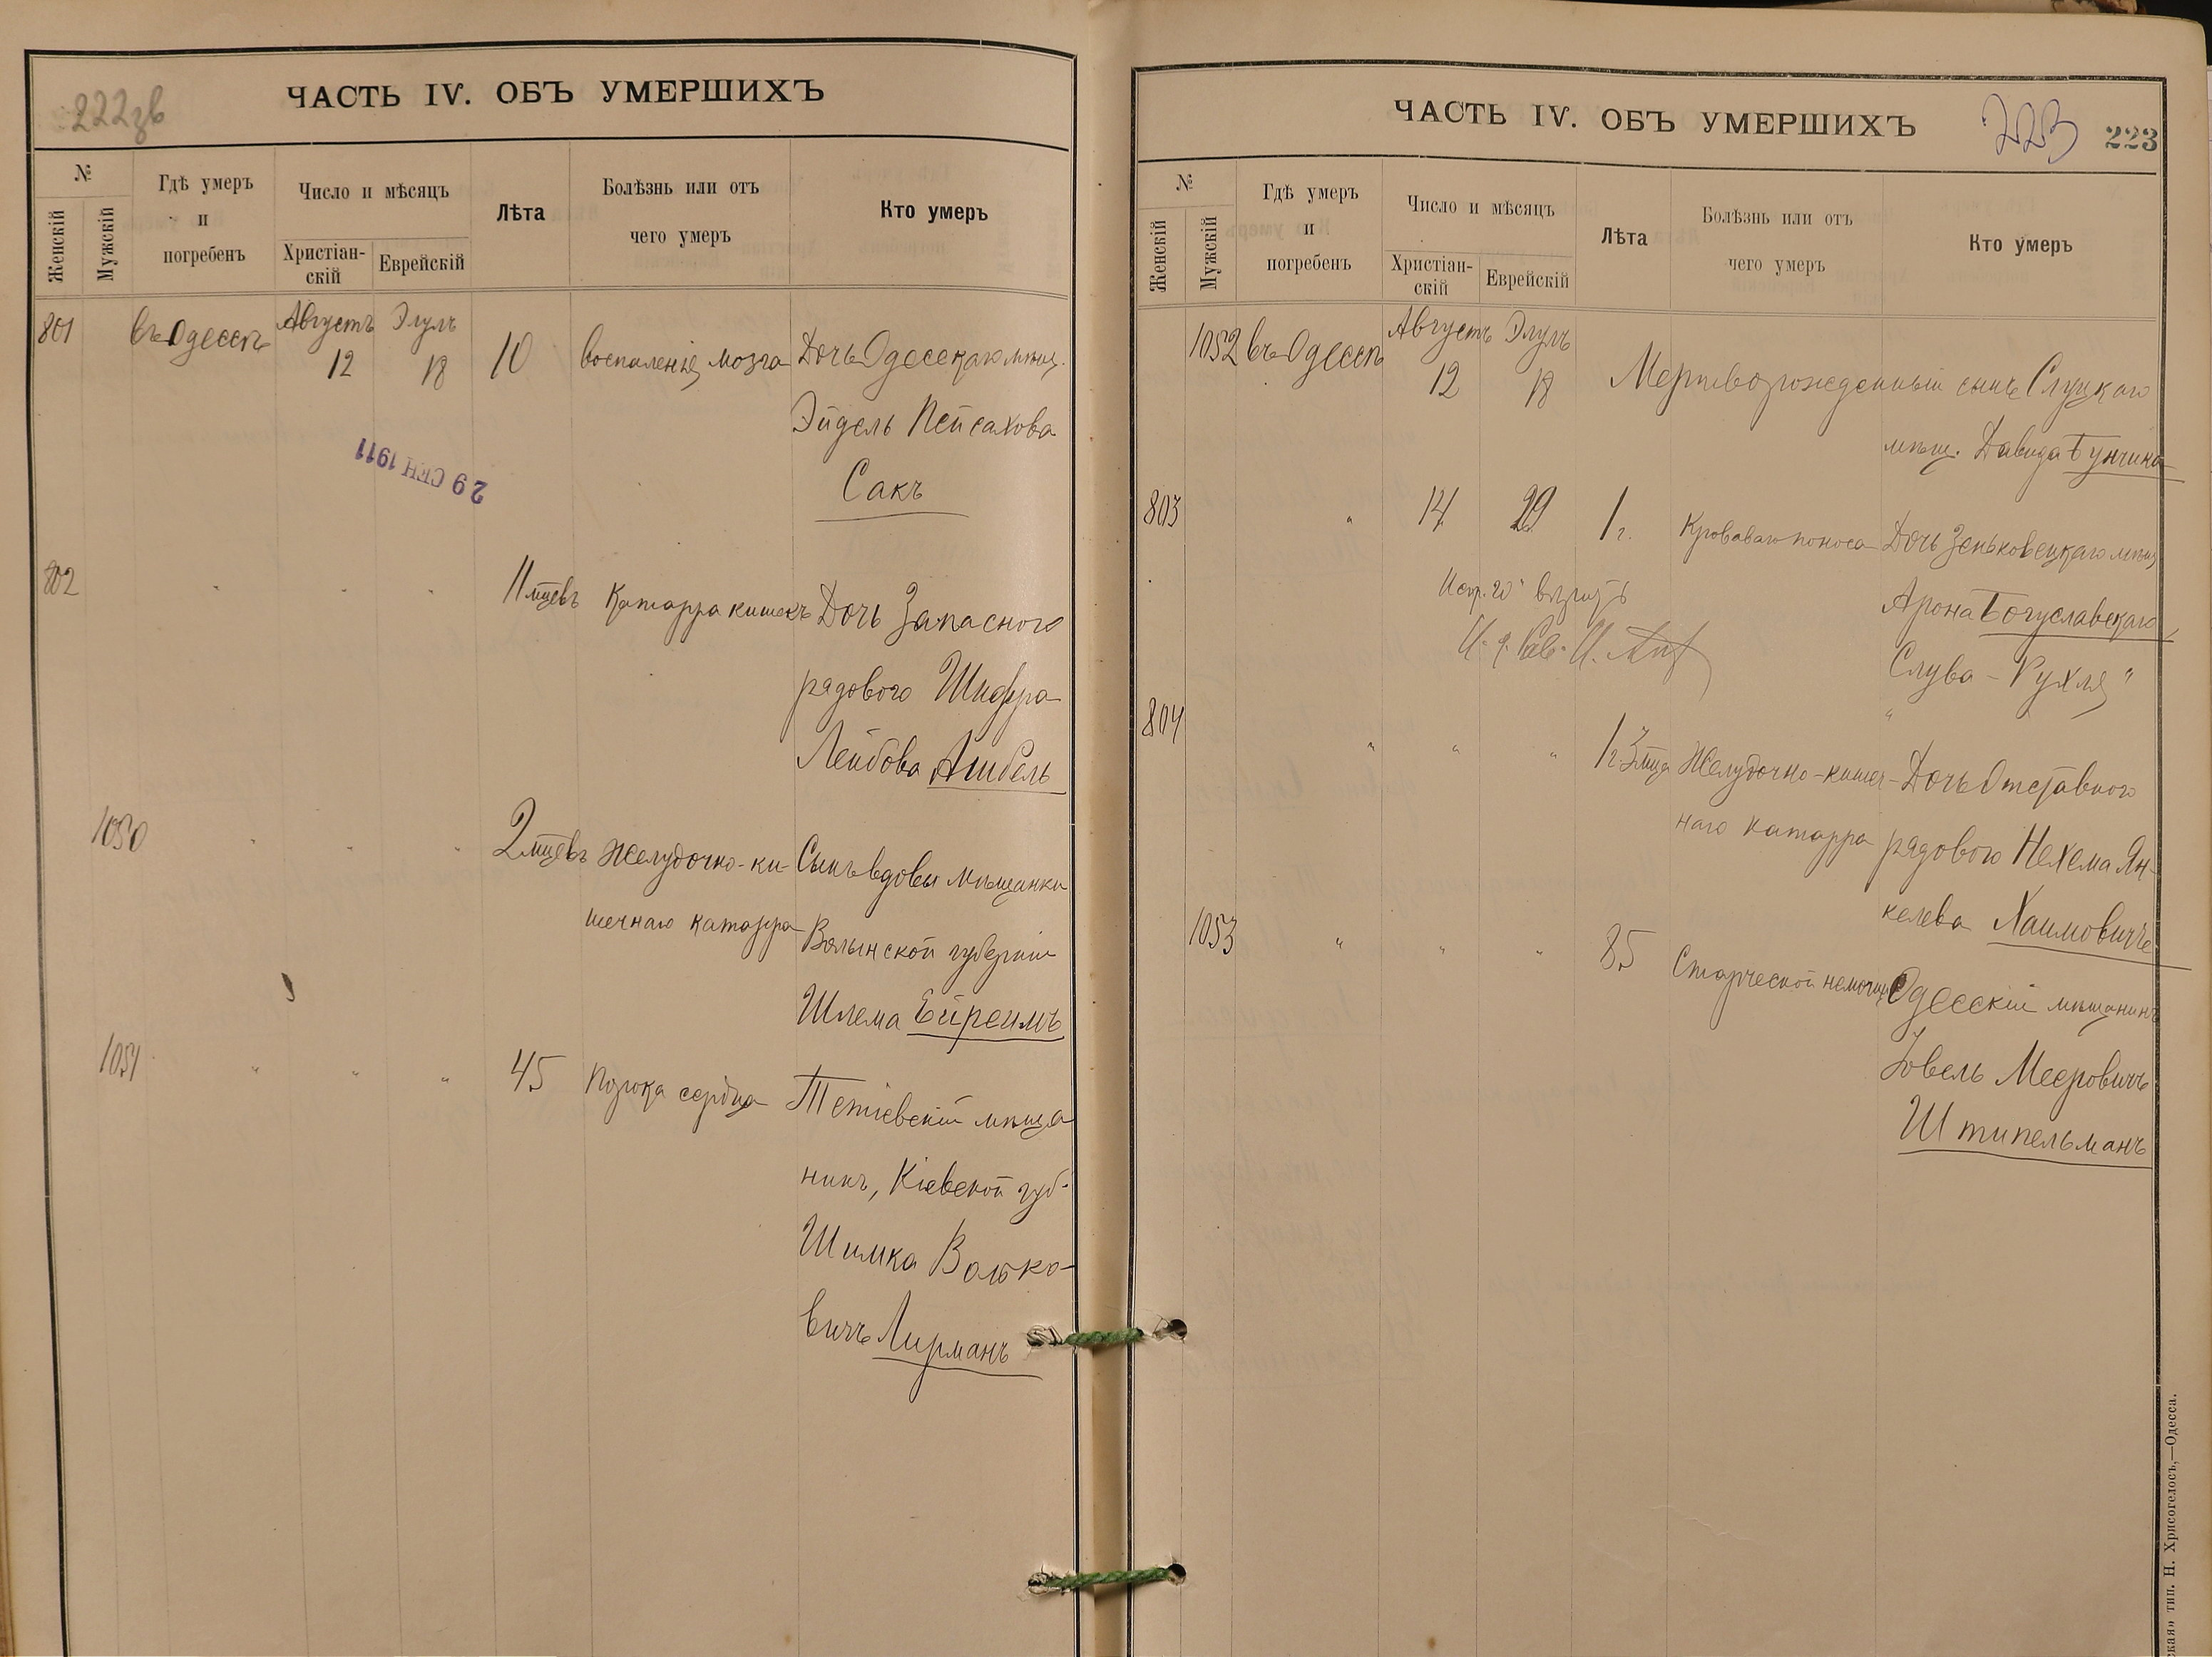 222зв
ЧАСТЬ IV. ОБЪ УМЕРШИХЪ
№
Женскій
Мужскій
Гдѣ умеръ
и
погребенъ
Число и мѣсяцъ
Христіан-
скій
Еврейскій
Лѣта
Болѣзнь или отъ
чего умеръ
Кто умеръ
801 въ Одессѣ Августъ Элулъ
12 18 10 воспаленія мозга Дочь Одесскаго мѣщ.
Эйдель Пейсахова
Сакъ
29 СЕН 1911
802 " " " 11 мцевъ Катарра кишекъ Дочь Запасного
рядового Шифра
Лейбова Ашбель
1050 " " " 2 мцевъ Желудочно-ки- Сынъ вдовы мѣщанки
шечнаго катарра Волынской губерніи
Шлема Ейреимъ
1051 " " " 45 Порока сердца Тетіевскій мѣща
нинъ, Кіевской губ.
Шимка Волько-
вичъ Лирманъ
ЧАСТЬ IV. ОБЪ УМЕРШИХЪ
223
223
№
Женскій
Мужскій
Гдѣ умеръ
и
погребенъ
Число и мѣсяцъ
Христіан-
скій
Еврейскій
Лѣта
Болѣзнь или отъ
чего умеръ
Кто умеръ
1052 въ Одессѣ Августъ Элулъ
12 18 Мертворожденный сынъ Слуцкаго
мѣщ. Давида Бунчика
803 " 14 1 г. Кроваваго поноса Дочь Зеньковецкаго мѣщ
Арона Богуславскаго,
Слува-Рухля "
804 " " " 1 г. 3 мца Желудочно-кишеч- Дочь Отставного
наго катарра рядового Нехема Ян-
келева Хаимовичъ
1053 " " " 85 Старческой немощи Одесскій мѣщанинъ
Іовель Меєровичъ
Штипельманъ
тип. Н. Хрисогелосъ,—Одесса.